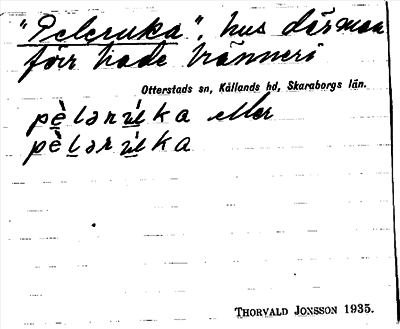 "Peleruka", hus där man
förr hade bränneri
Otterstads sn, Kållands hd, Skaraborgs län.
pèlərúka eller
pèlərúka
THORVALD JONSSON 1935.